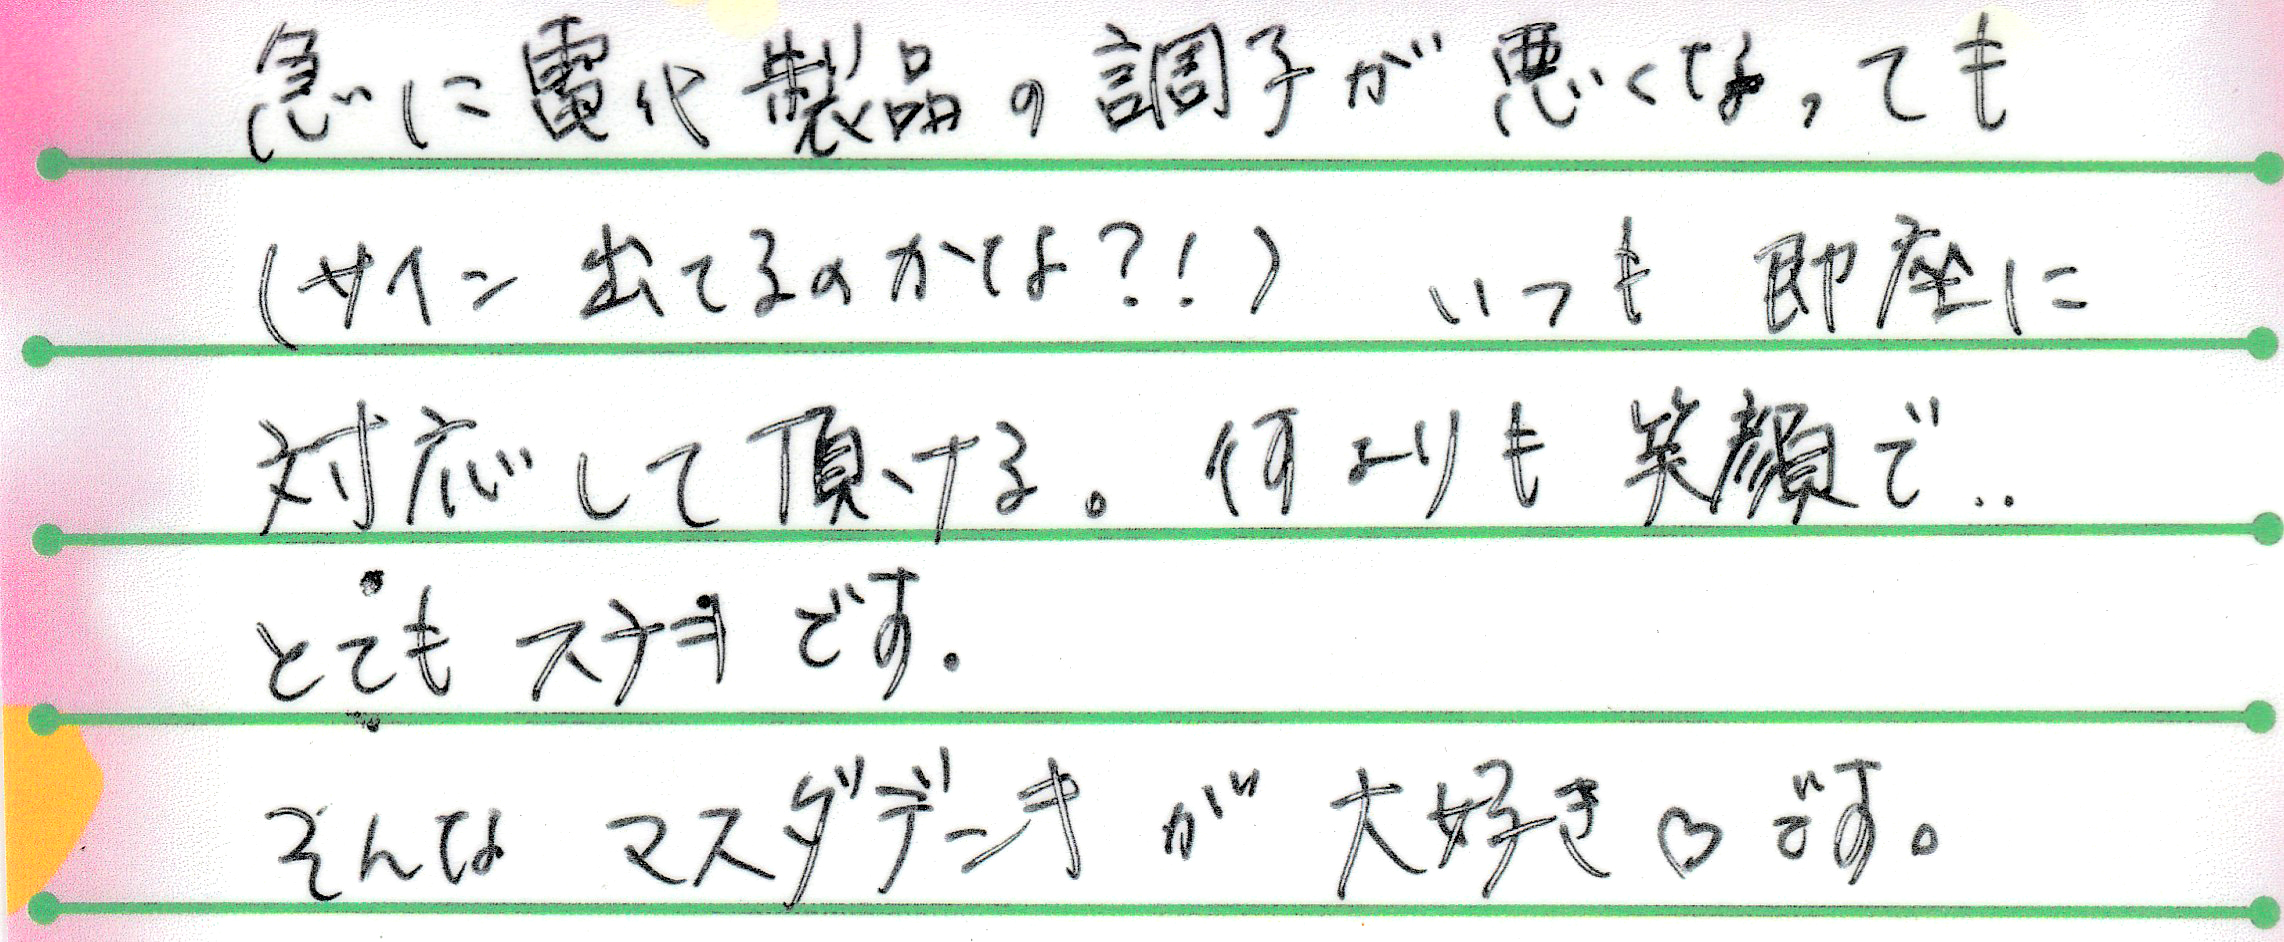 急に電化製品の調子が悪くなっても
(サイン出てるのかな?!) いつも即座に
対応して頂ける。何よりも笑顔で..
とてもステキです.
そんなマスダデンキが大好き♡です。